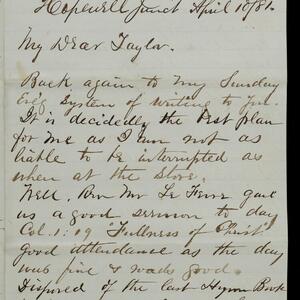 Hopewell Junct April 10/81.
My Dear Taylor.
Back again to my Sunday
Eve'g System of writing to you.
It is decidedly the best plan
for me as I am not as
liable to be interrupted as
when at the Store.
Well. Rev Mr Le Fevre gave
us a good sermon to day
Col. 1:19 "Fullness of Christ"
good attendance as the day
was fine & roads good.
Disposed of the last Hymn Book